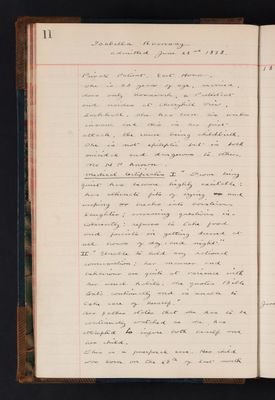 11
Isabella Ramsay
admitted June 22nd 1898.
Private Patient. East House.
She is 28 years of age, married,
does only housework, a Protestant
and resides at
She has been six weeks
insane and this is her first
attack, the cause being childbirth.
She is not epileptic but is both
suicidal and dangerous to others.
No H. P. known.
Medical Certificates I "From being
quiet has become highly excitable;
has attacks fits of crying and
weeping or breaks into boisterous
laughter; answering questions in-
coherently; refuses to take food
and persists on getting dressed at
all hours of day and night."
II "Unable to hold any rational
conversation; her manner and
behaviour are quite at variance with
her usual habits. She quotes Bible
texts continually and is unable to
take care of herself."
Her father states that she has to be
continually watched as she has
attempted to injure both herself and
her child.
This is a puerperal case. Her child
was born on the of last month
18
June